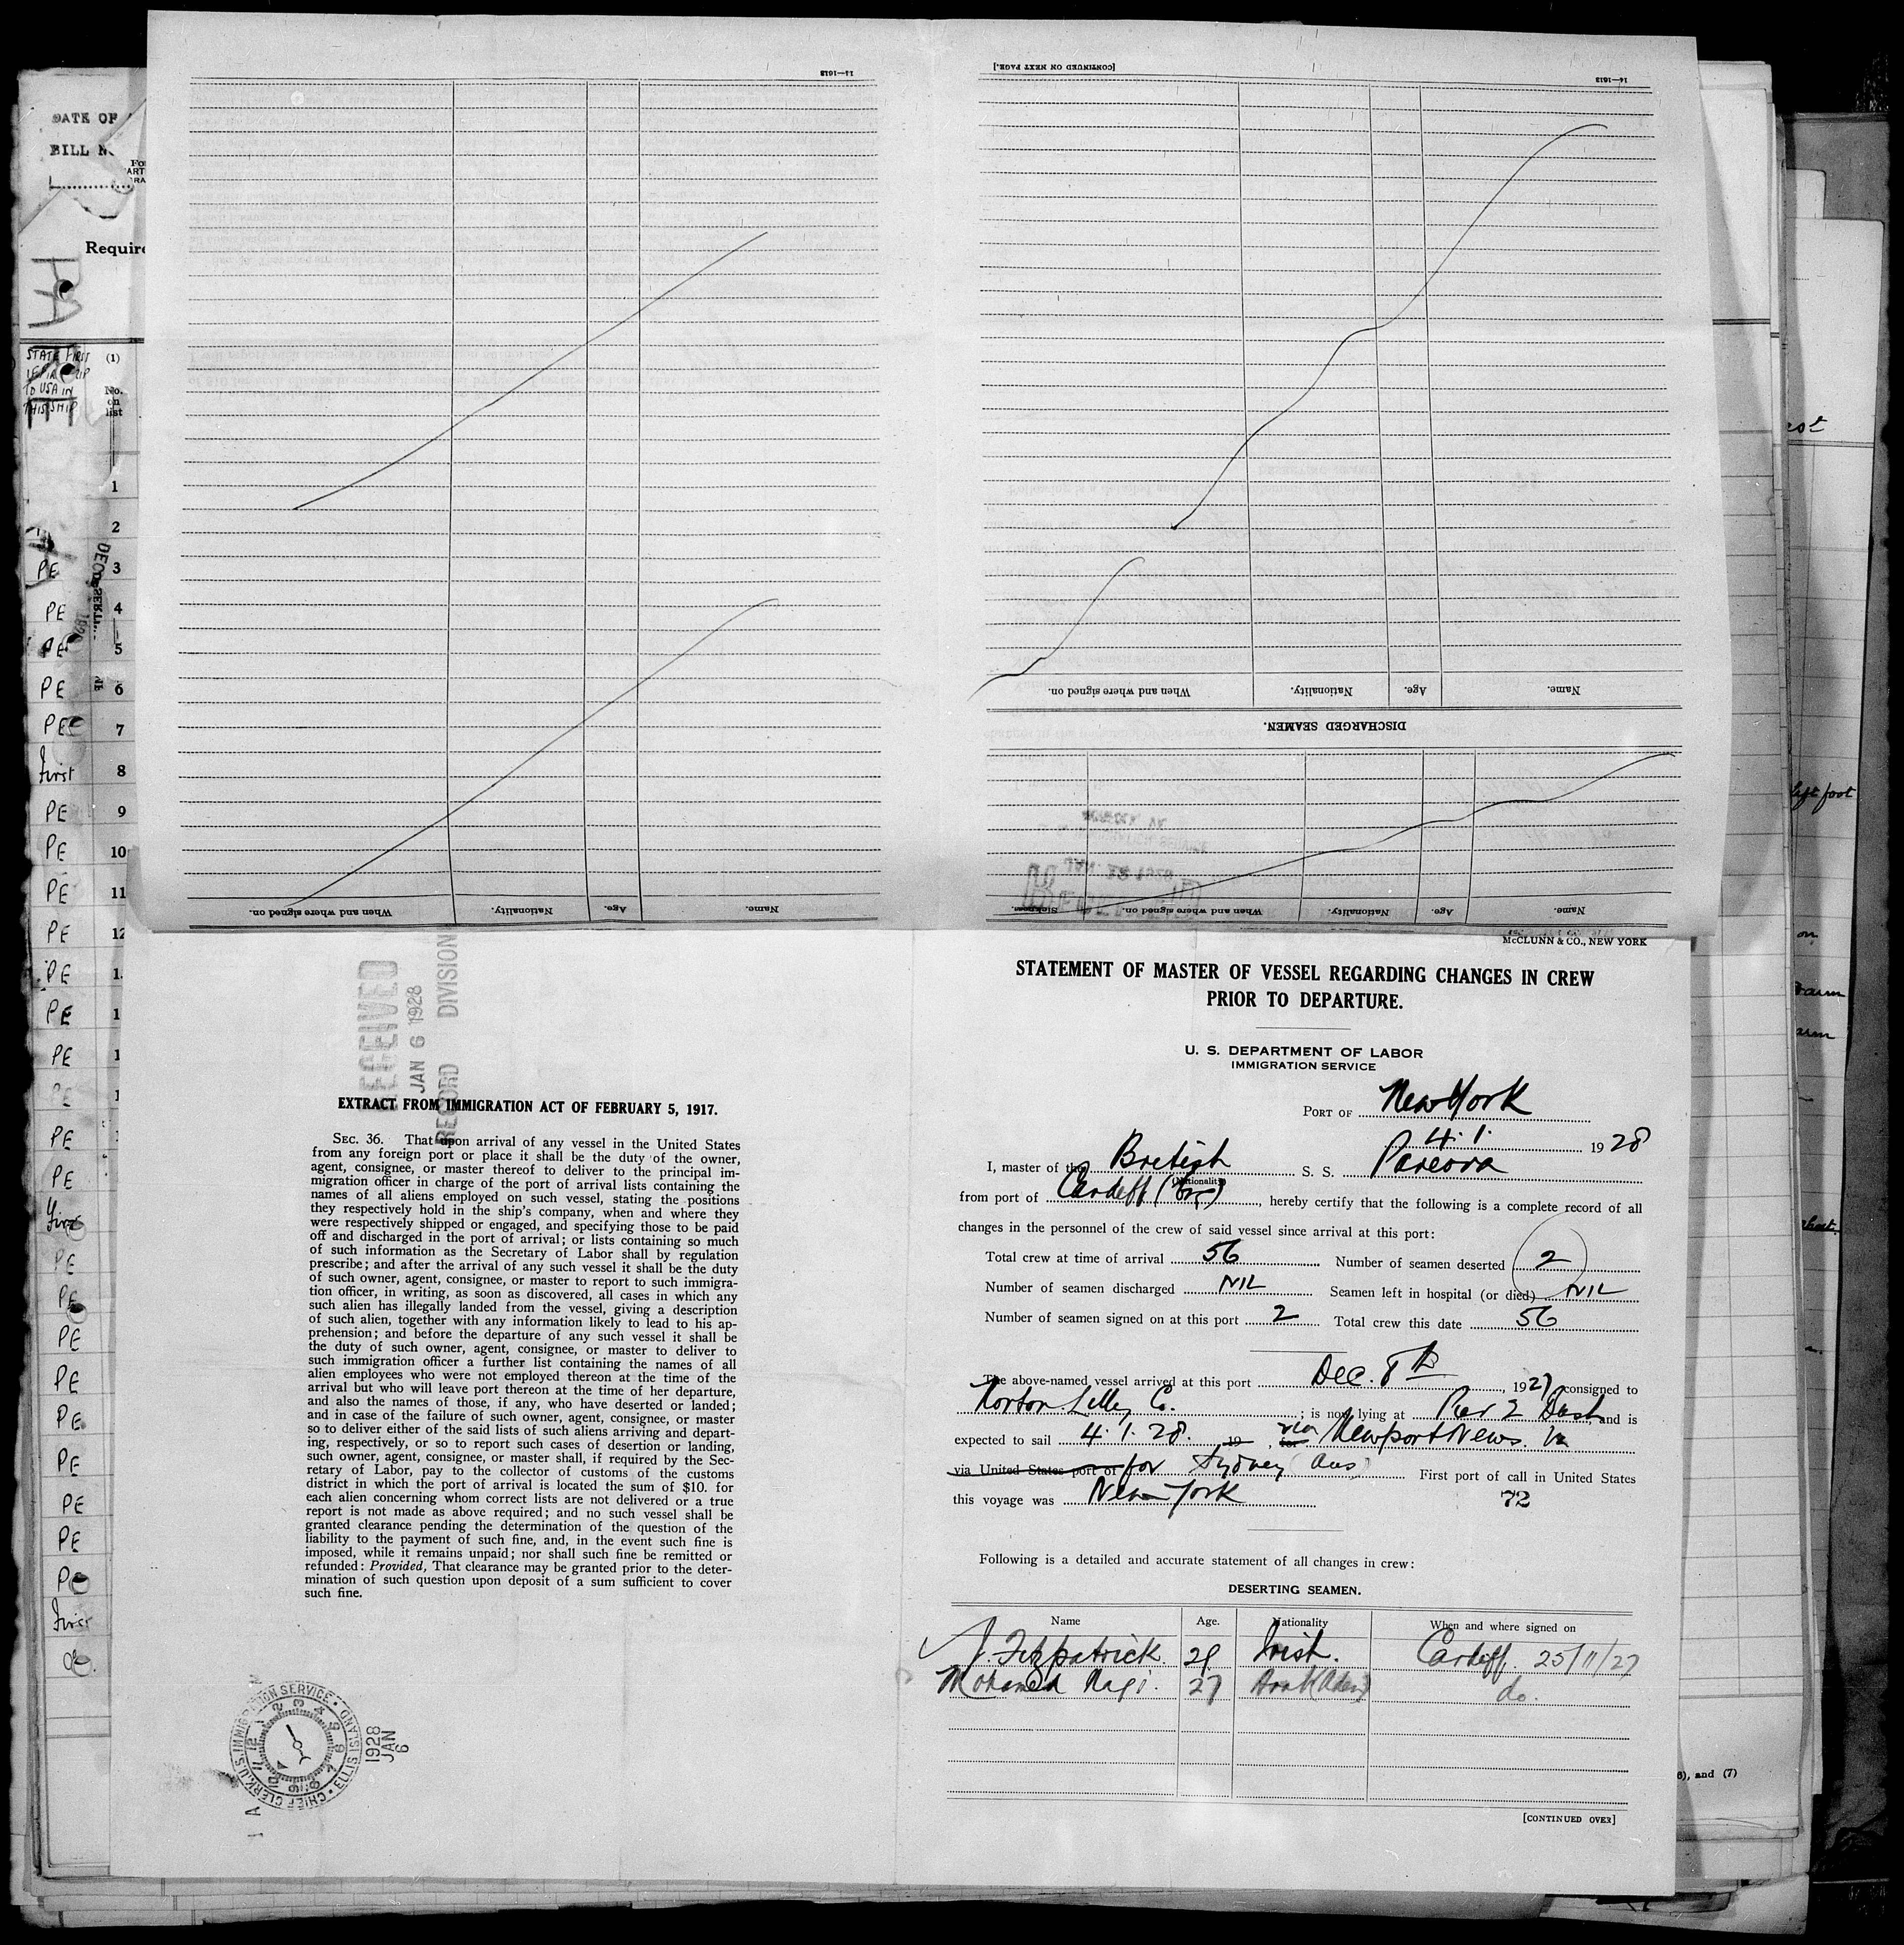 DATE OF
BILL N
Require
STATE FIRST
TO USA IN
THIS SHIP
(1)
No.
on
list
1
2
PE 3
PE 4
PE 5
PE 6
PE 7
First 8
PE 9
PE 10
PE 11
PE 12
PE
PE
PE
PE
PE
PE
First
PE
PE
PE
PE
PE
PE
PE
PE
PE
First
do.
14—1613
[CONTINUED ON NEXT PAGE.]
14—1613
Name.
Age.
Nationality.
When and where signed on.
DISCHARGED SEAMEN.
Name.
Age.
Nationality.
When and where signed on.
Sickness.
Name.
Age.
Nationality.
When and where signed on.
left foot
6), and (7)
McCLUNN & CO., NEW YORK
RECEIVED
JAN 6 1928
RECORD DIVISION
EXTRACT FROM IMMIGRATION ACT OF FEBRUARY 5, 1917.
SEC. 36. That upon arrival of any vessel in the United States
from any foreign port or place it shall be the duty of the owner,
agent, consignee, or master thereof to deliver to the principal im-
migration officer in charge of the port of arrival lists containing the
names of all aliens employed on such vessel, stating the positions
they respectively hold in the ship's company, when and where they
were respectively shipped or engaged, and specifying those to be paid
off and discharged in the port of arrival; or lists containing so much
of such information as the Secretary of Labor shall by regulation
prescribe; and after the arrival of any such vessel it shall be the duty
of such owner, agent, consignee, or master to report to such immigra-
tion officer, in writing, as soon as discovered, all cases in which any
such alien has illegally landed from the vessel, giving a description
of such alien, together with any information likely to lead to his ap-
prehension; and before the departure of any such vessel it shall be
the duty of such owner, agent, consignee, or master to deliver to
such immigration officer a further list containing the names of all
alien employees who were not employed thereon at the time of the
arrival but who will leave port thereon at the time of her departure,
and also the names of those, if any, who have deserted or landed;
and in case of the failure of such owner, agent, consignee, or master
so to deliver either of the said lists of such aliens arriving and depart-
ing, respectively, or so to report such cases of desertion or landing,
such owner, agent, consignee, or master shall, if required by the Sec-
retary of Labor, pay to the collector of customs of the customs
district in which the port of arrival is located the sum of $10. for
each alien concerning whom correct lists are not delivered or a true
report is not made as above required; and no such vessel shall be
granted clearance pending the determination of the question of the
liability to the payment of such fine, and, in the event such fine is
imposed, while it remains unpaid; nor shall such fine be remitted or
refunded: Provided, That clearance may be granted prior to the deter-
mination of such question upon deposit of a sum sufficient to cover
such fine.
CHIEF CLERK, U.S. IMMIGRATION SERVICE • ELLIS ISLAND •
1928
JAN
6
STATEMENT OF MASTER OF VESSEL REGARDING CHANGES IN CREW
PRIOR TO DEPARTURE.
U. S. DEPARTMENT OF LABOR
IMMIGRATION SERVICE
PORT OF New York
4. 1. 1928
I, master of the British S. S. Pareora
(Nationality)
from port of Cardiff (Eng), hereby certify that the following is a complete record of all
changes in the personnel of the crew of said vessel since arrival at this port:
Total crew at time of arrival 56 Number of seamen deserted 2
Number of seamen discharged NIL Seamen left in hospital (or died) NIL
Number of seamen signed on at this port 2 Total crew this date 56
The above-named vessel arrived at this port Dec. 8th, 1927 consigned to
Norton Lilley Co.; is now lying at Pier 2 Bush and is
expected to sail 4. 1. 28. 19 , for via Newport News. Va
via United States port of for Sydney (Aus) First port of call in United States
this voyage was New York 72
Following is a detailed and accurate statement of all changes in crew:
DESERTING SEAMEN.
Name Age. Nationality When and where signed on
J. Fitzpatrick. 29. Irish. Cardiff. 25/11/27
Mohamed Nagi. 27 Arab (Aden) do.
[CONTINUED OVER]